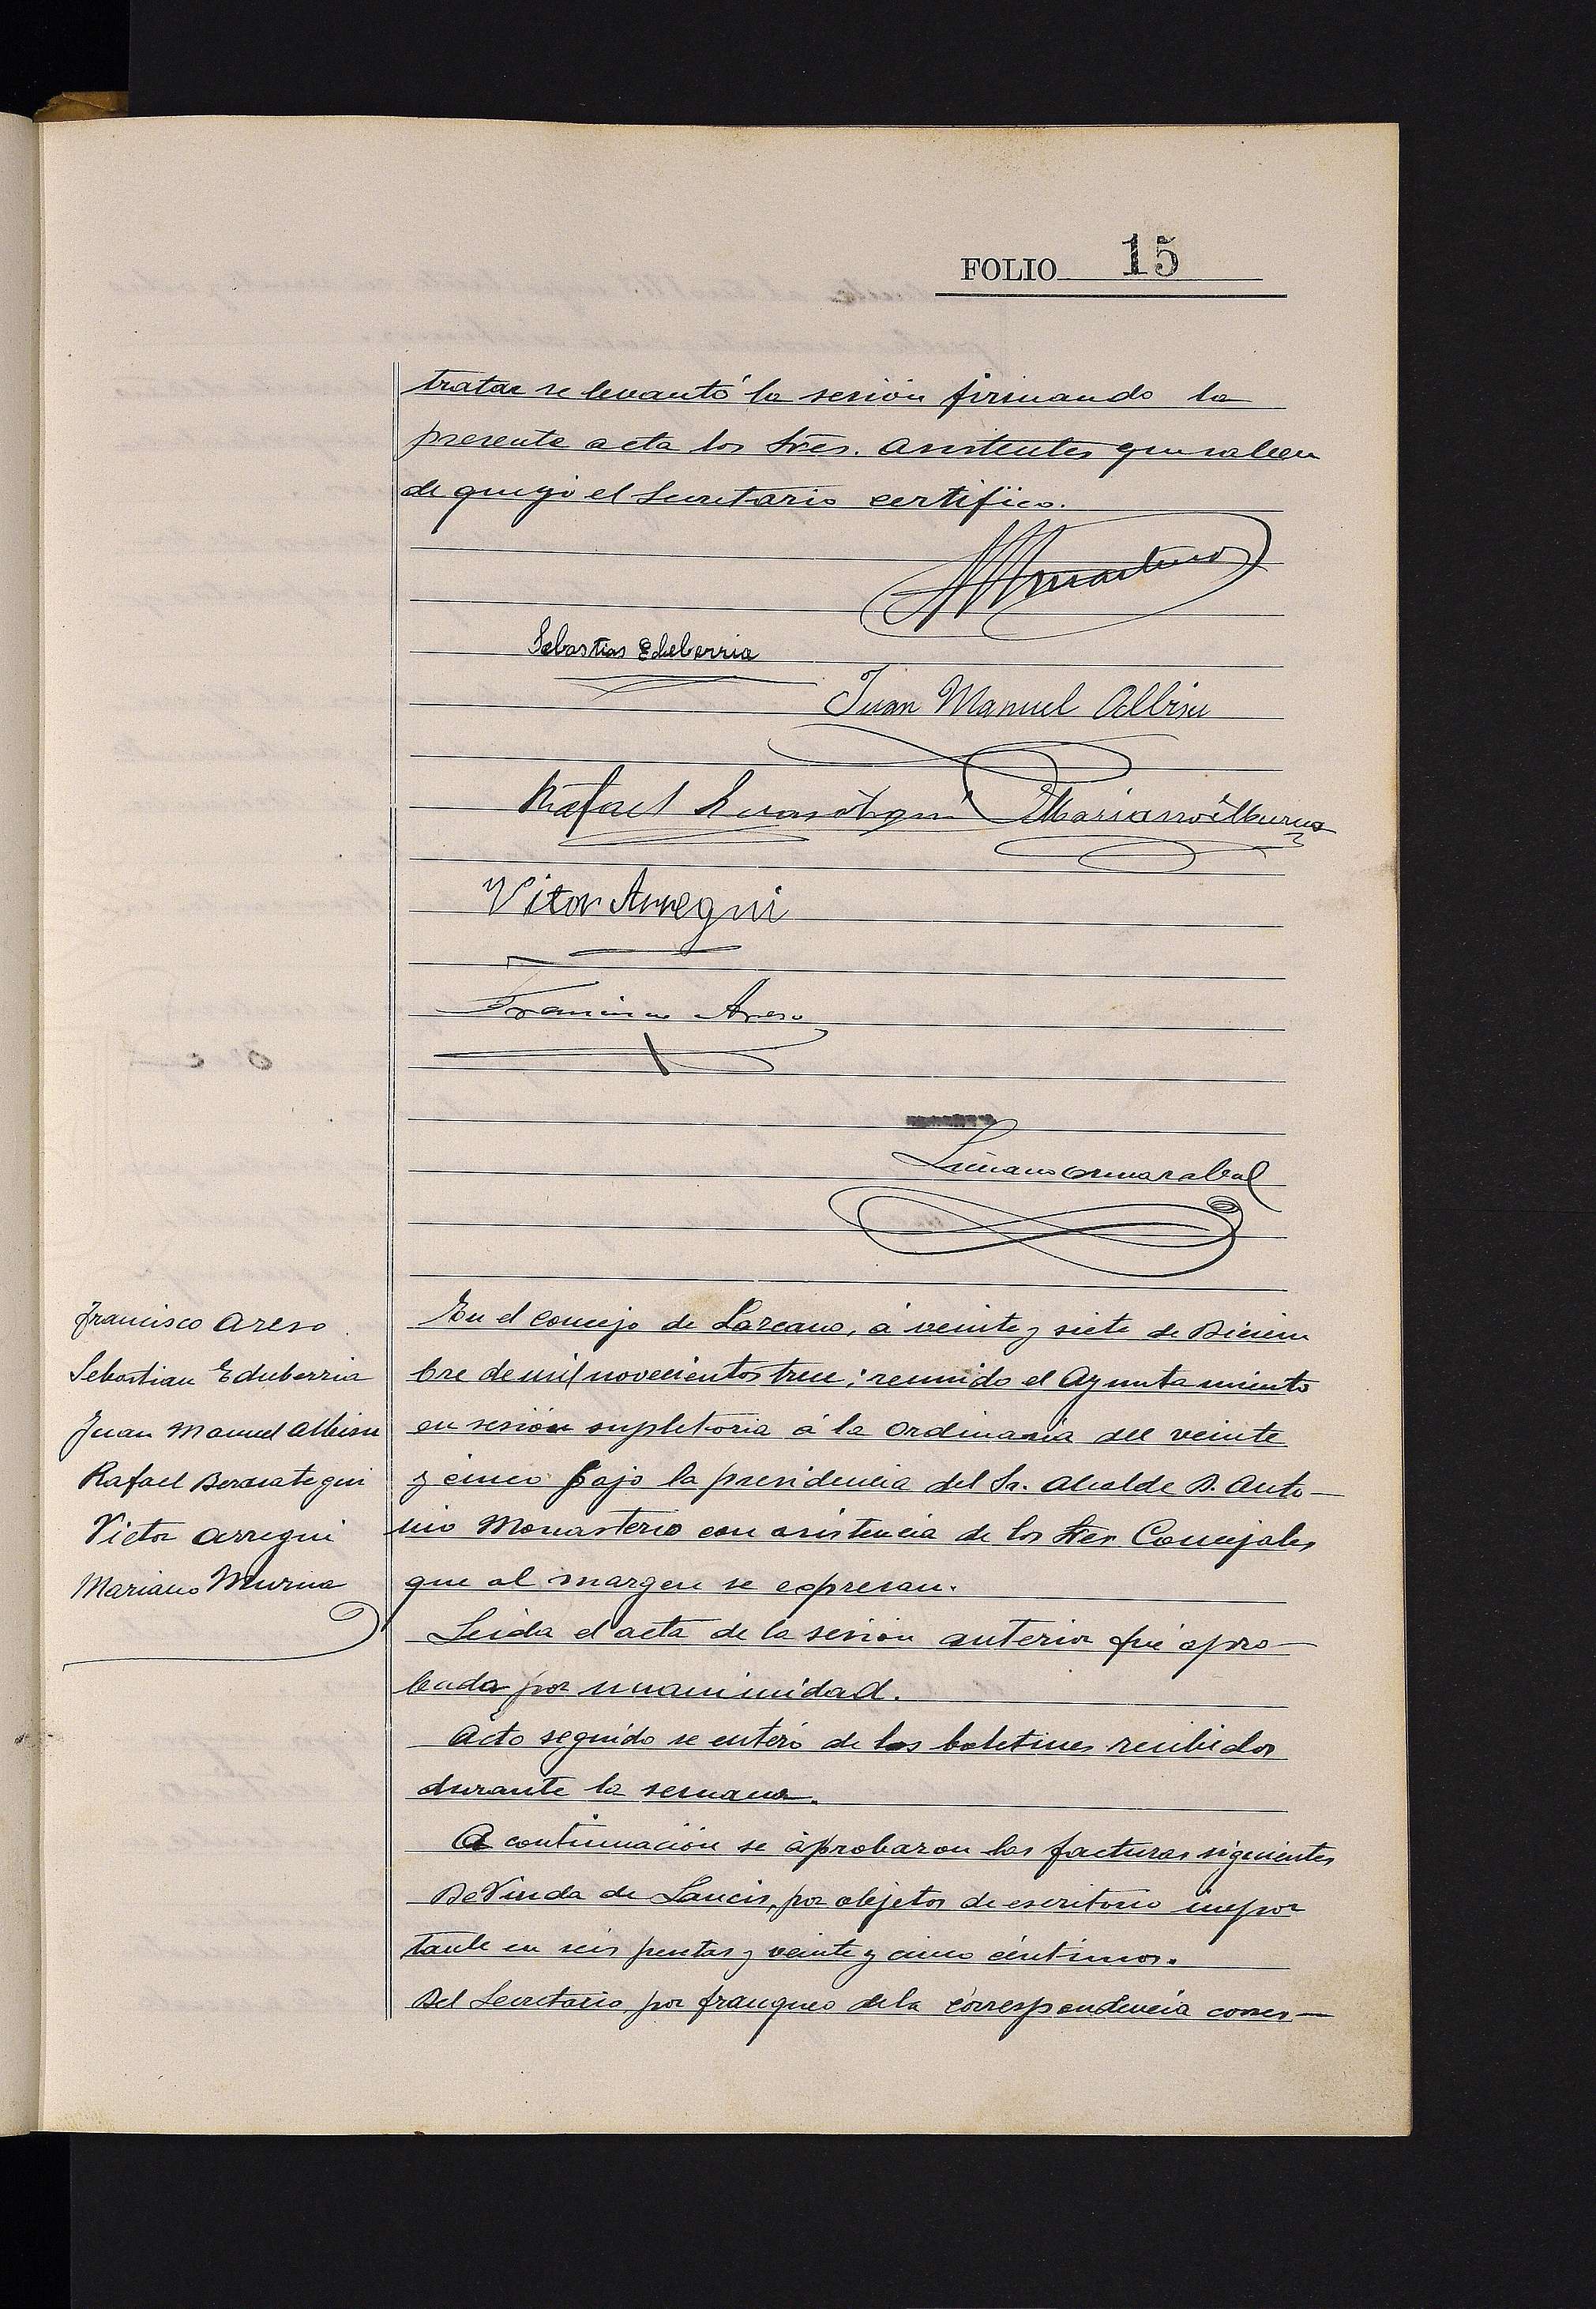 FOLIO 15
tratar se levantó la sesión firmando la
presente acta los Sres. asistentes que saben
de que yo el Secretario certifico.
Sebastian Echeberria
Juan Manuel Albisu
Rafael
Mariano Murua
Vitor Arregui
Francisco Areso
Luciano
Francisco Areso
Sebastian Echeberria
Juan Manuel Albisu
Rafael Berasategui
Victor Arregui
Mariano Murua
En el Concejo de Lazcano, á veinte y siete de Diciem
bre de mil novecientos trece; reunido el Ayuntamiento
en sesión supletoria á la ordinaria del veinte
y cinco bajo la presidencia del Sr. Alcalde D. Anto-
nio Monasterio con asistencia de los Sres Concejales
que al margen se expresan.
Leida el acta de la sesión anterior fué apro-
bada por unanimidad.
Acto seguido se enteró de los boletines recibidos
durante la semana.
A continuación se aprobaron las facturas siguientes
De Viuda de Laucis, por objetos de escritorio impor
tante en seis pesetas y veinte y cinco céntimos.
Del Secretario, por franqueo de la correspondencia corres-